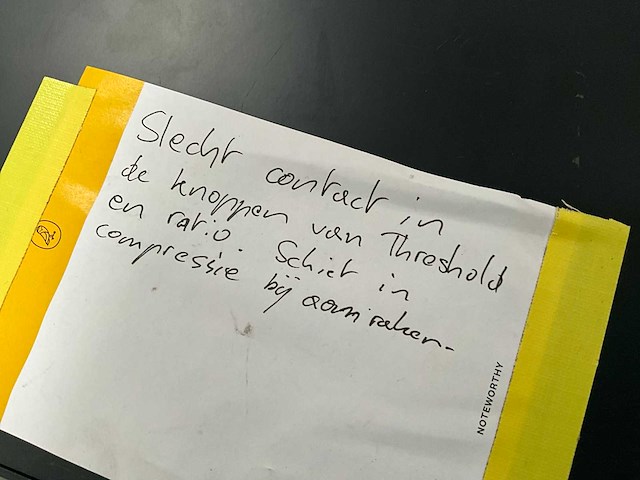 Slecht contact in
de knoppen van Threshold
en ratio. Schiet in
compressie bij aanraken.
NOTEWORTHY